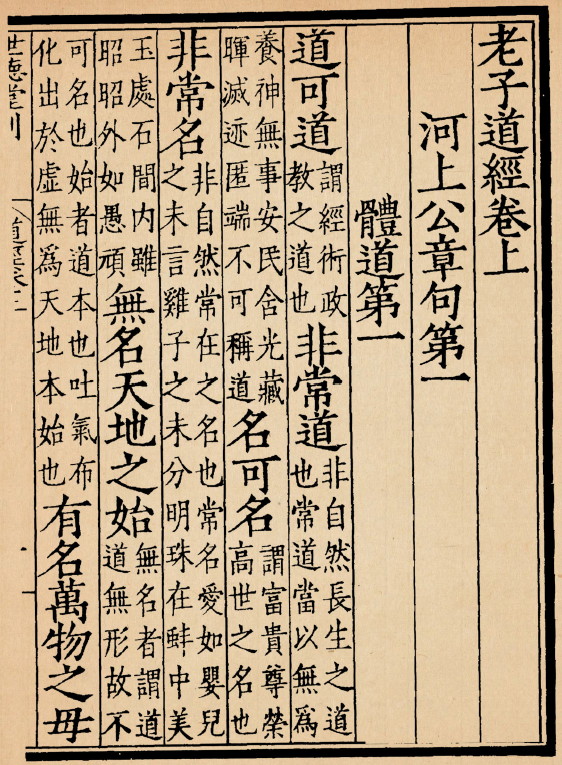 老子道經卷上
河上公章句第一
體道第一
道可道謂經術政教之道也非常道非自然長生之道也常道當以無爲
養神無事安民含光藏暉滅迹匿端不可稱道名可名謂富貴尊榮高世之名也
非常名非自然常在之名也常名愛如嬰兒之未言雞子之未分明珠在蚌中美
玉處石間內雖昭昭外如愚頑無名天地之始無名者謂道道無形故不
可名也始者道本也吐氣布化出於虛無爲天地本始也有名萬物之母
世德堂刊